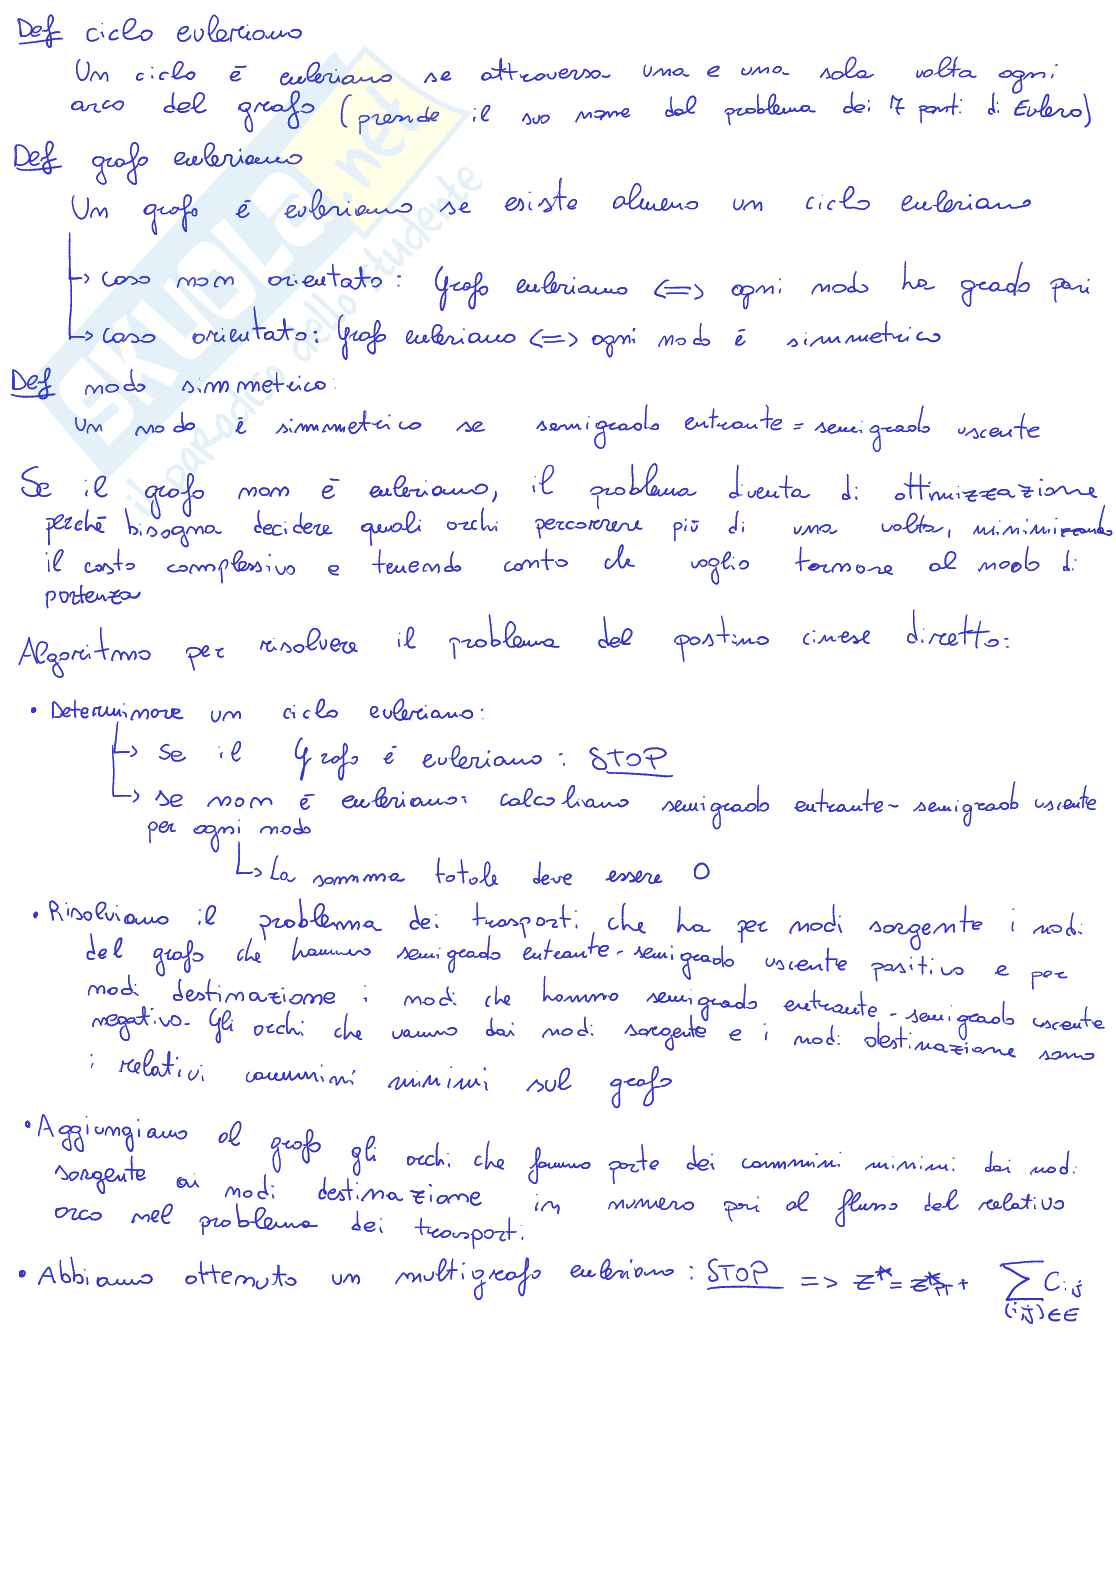 Def ciclo euleriano
Un ciclo è euleriano se attraversa una e una sola volta ogni
arco del grafo (prende il suo nome dal problema dei 7 ponti di Eulero)
Def grafo euleriano
Un grafo è euleriano se esiste almeno un ciclo euleriano
↳ caso non orientato: Grafo euleriano <=> ogni nodo ha grado pari
↳ caso orientato: Grafo euleriano <=> ogni nodo è simmetrico
Def nodo simmetrico:
Un nodo è simmetrico se semigrado entrante = semigrado uscente
Se il grafo non è euleriano, il problema diventa di ottimizzazione
perché bisogna decidere quali archi percorrere più di una volta, minimizzando
il costo complessivo e tenendo conto che voglio tornare al nodo di
partenza
Algoritmo per risolvere il problema del postino cinese diretto:
• Determinare un ciclo euleriano:
↳ Se il Grafo è euleriano: STOP
↳ se non è euleriano: calcoliamo semigrado entrante - semigrado uscente
per ogni nodo
↳ La somma totale deve essere 0
• Risolviamo il problema dei trasporti che ha per nodi sorgente i nodi
del grafo che hanno semigrado entrante - semigrado uscente positivo e per
nodi destinazione i nodi che hanno semigrado entrante - semigrado uscente
negativo. Gli archi che vanno dai nodi sorgente e i nodi destinazione sono
i relativi cammini minimi sul grafo
• Aggiungiamo al grafo gli archi che fanno parte dei cammini minimi dai nodi
sorgente ai nodi destinazione in numero pari al flusso del relativo
arco nel problema dei trasporti.
• Abbiamo ottenuto un multigrafo euleriano: STOP => z* = z*PT + ∑(i,j)∈E Cij
SKUOLA.net
il paradiso dello studente